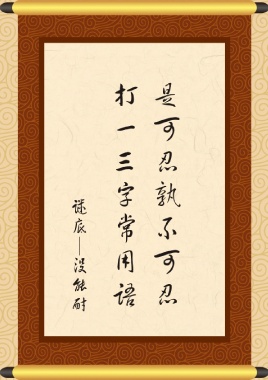 是可忍孰不可忍
打一三字常用语
谜底—没能耐